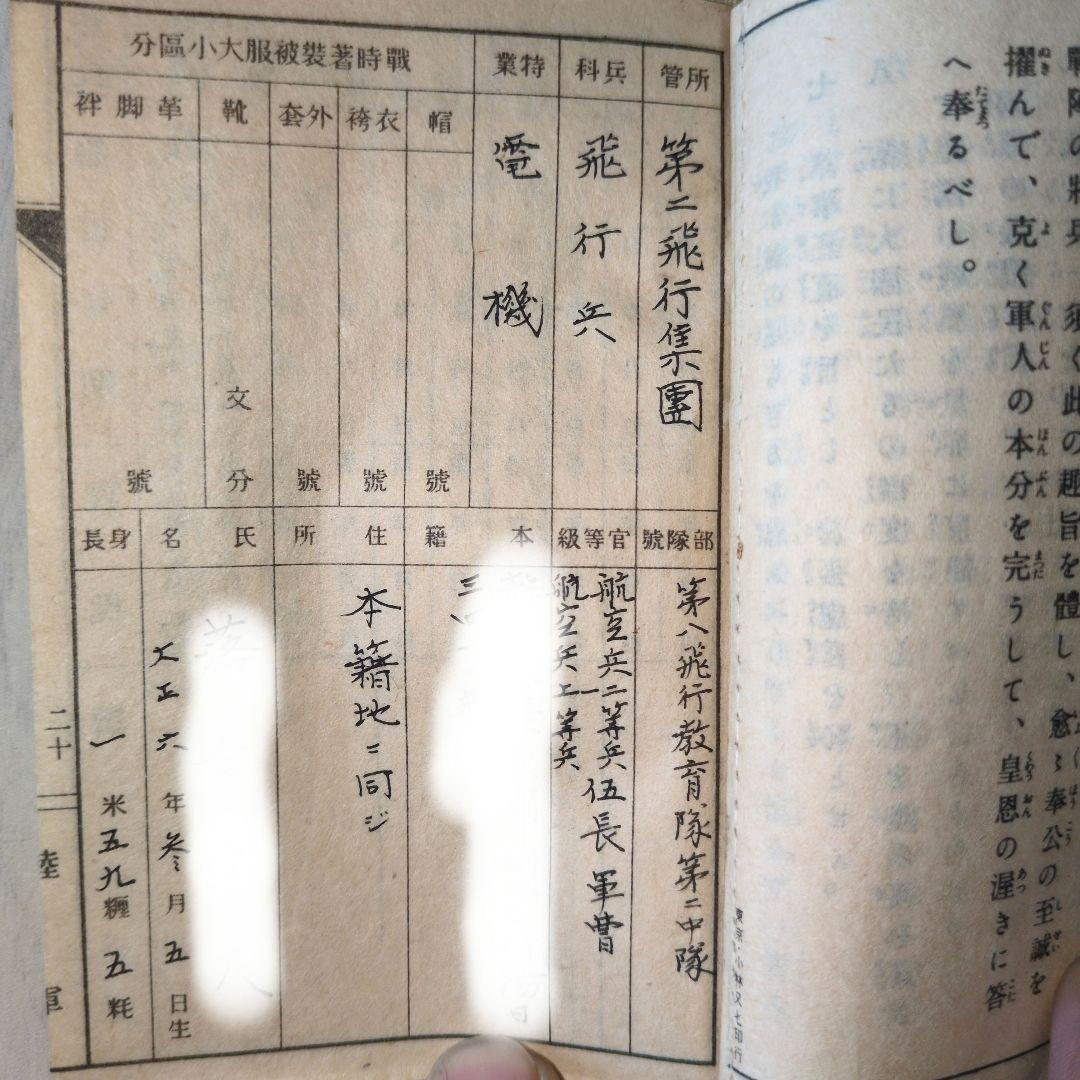 戰陣の將兵、須く此の趣旨を體し、愈〻奉公の至誠を
擢んで、克く軍人の本分を完うして、皇恩の渥きに答
へ奉るべし。
東京・小林又七印行
所管
第二飛行集團
兵科
飛行兵
特業
電機
戰時著裝被服大小區分
帽
號
衣袴
號
外套
號
靴
文
分
革脚絆
號
部隊號
第八飛行教育隊第二中隊
官等級
航空兵二等兵 伍長 軍曹
航空兵一等兵
航空兵上等兵
本籍
住所
本籍地ニ同ジ
氏名
大正六年參月五日生
身長
一米五九糎五粍
二十
陸
軍